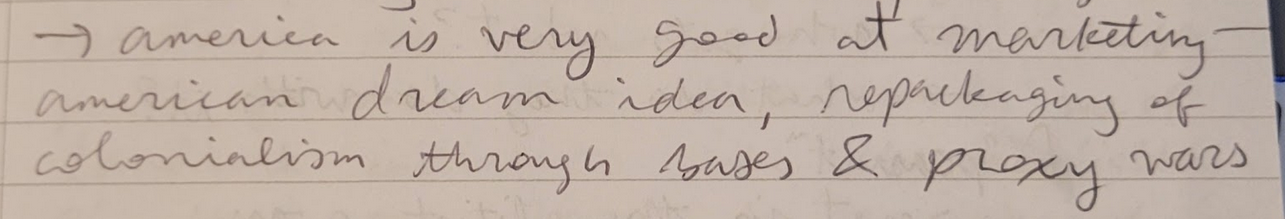 → america is very good at marketing —
american dream idea, repackaging of
colonialism through bases & proxy wars